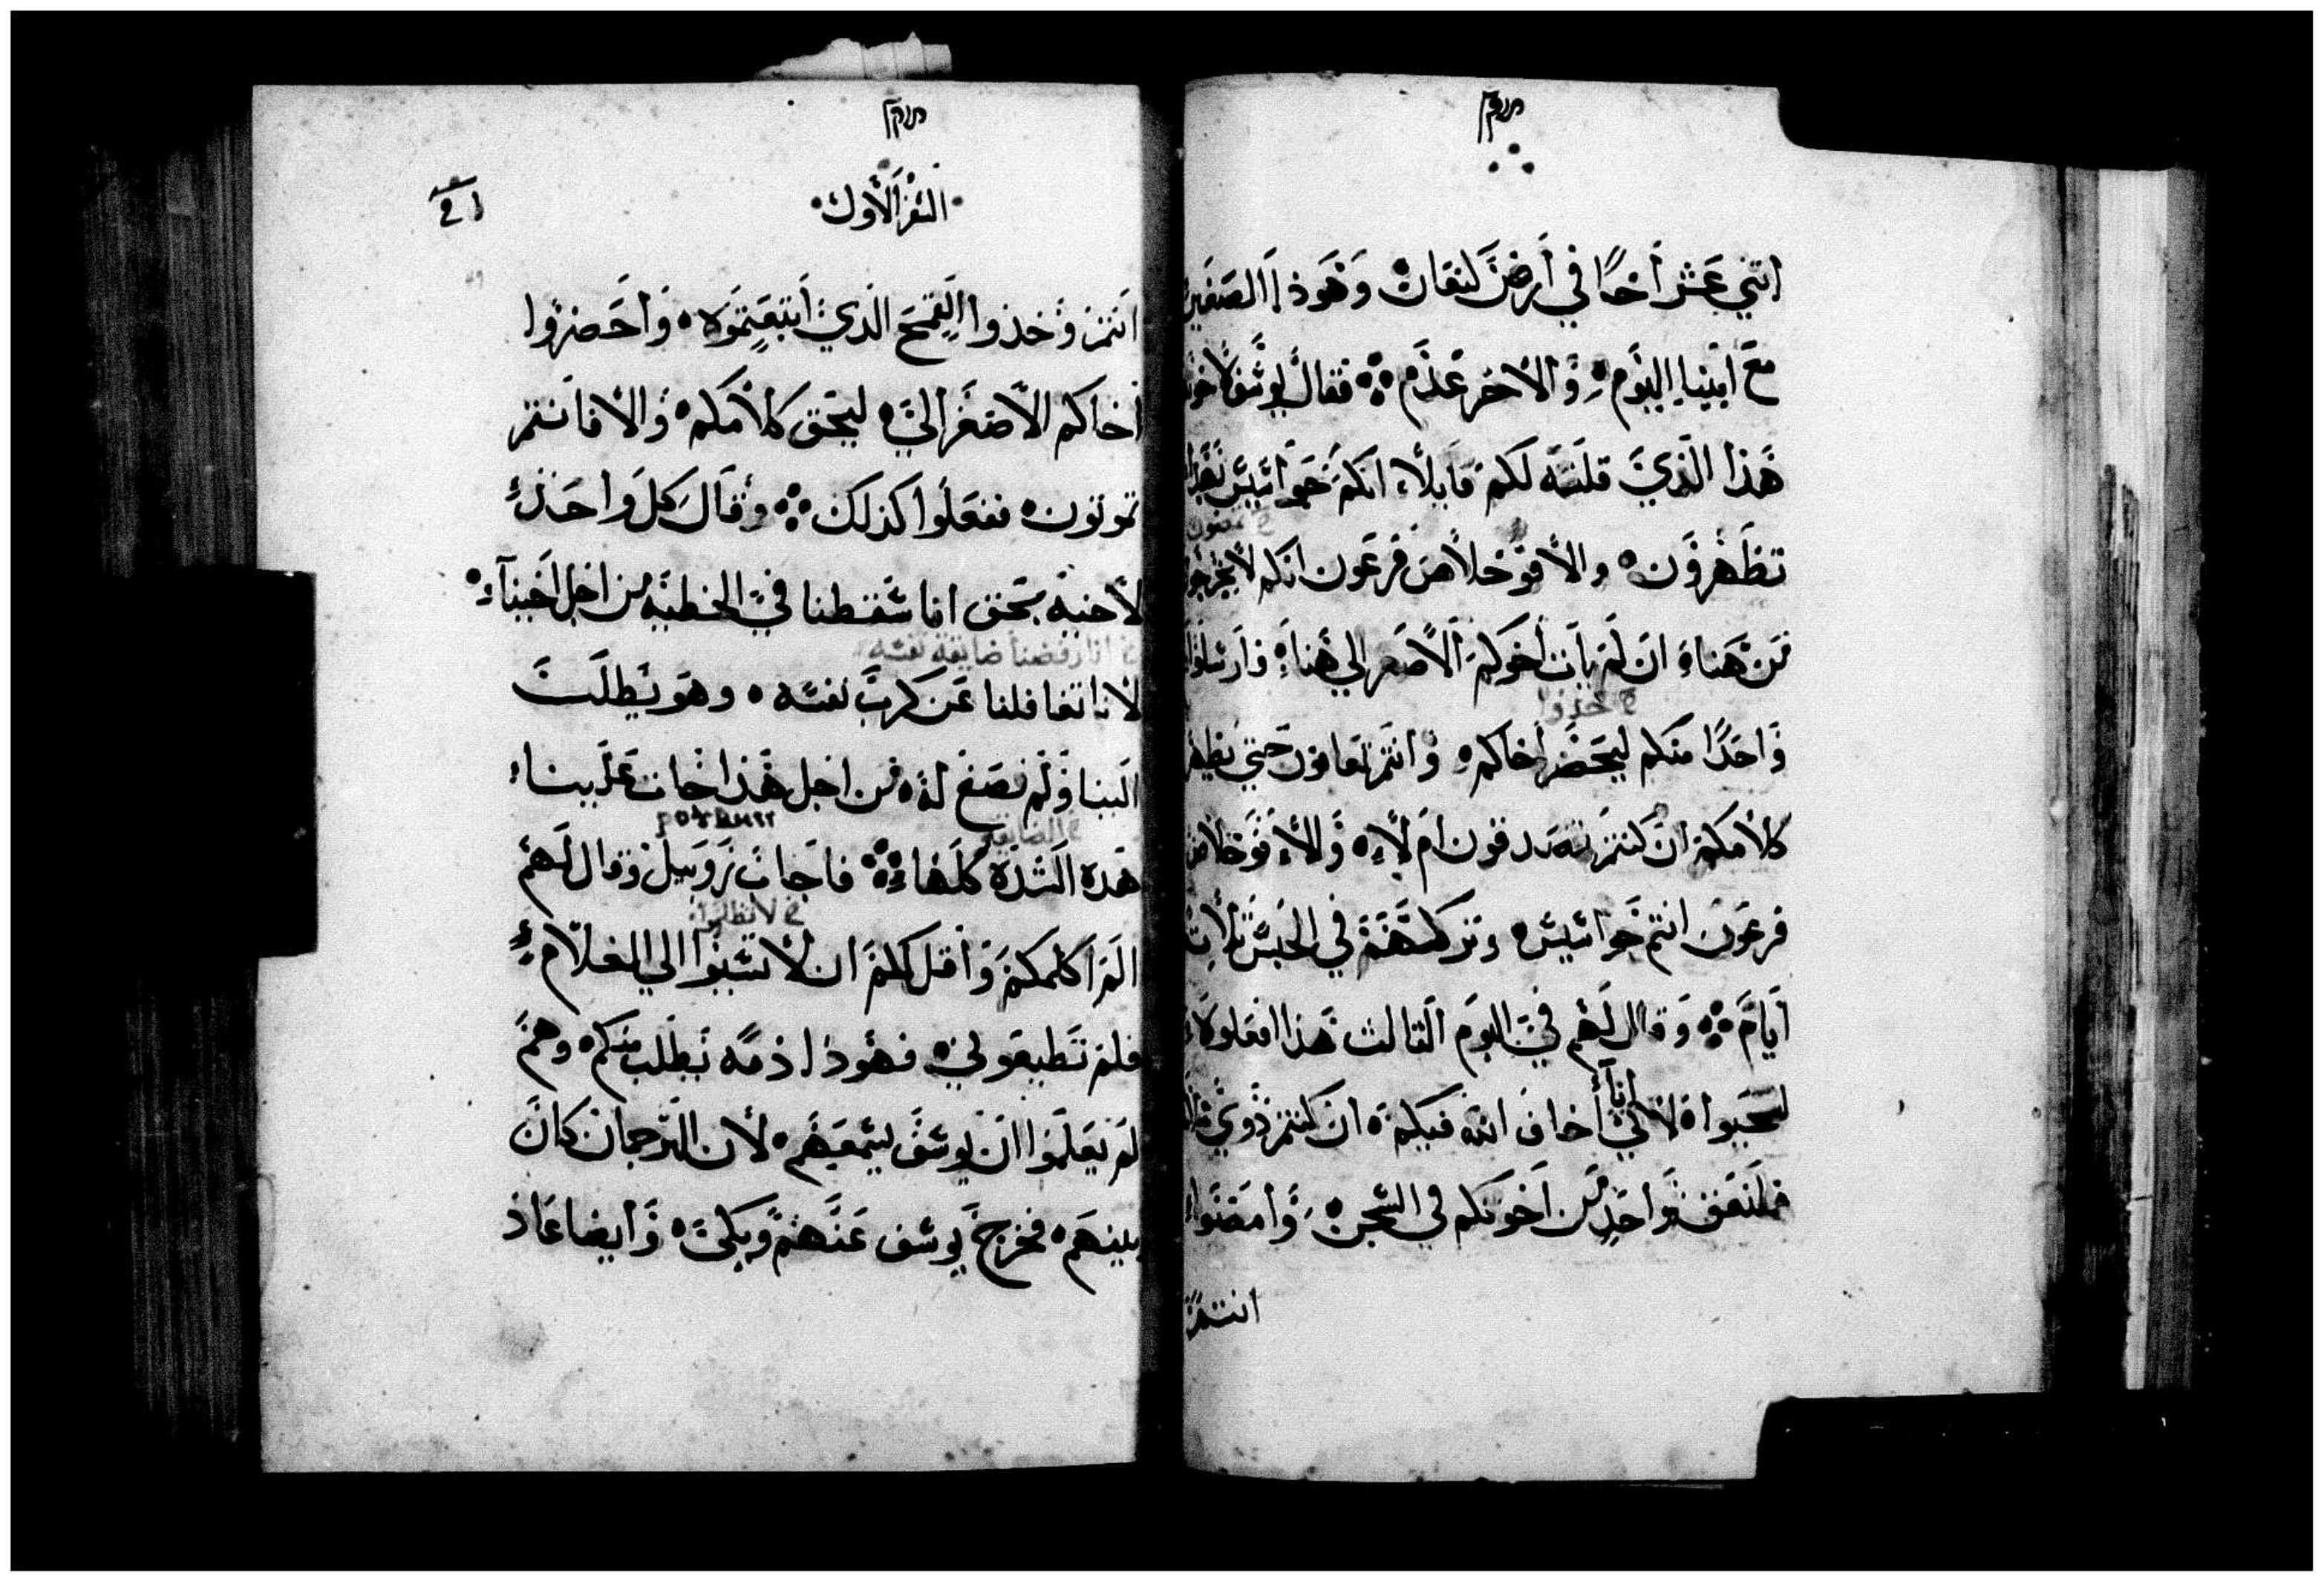 اتني عشر أخا في أرض كنعان وهوذا الصغير
مع ابينا اليوم والاخر عدم فقال يوسف لاخوته
هذا الذي قلته لكم قايلا انكم جواسيس بهذا
تظهرون والا فوحلاص فرعون انكم لا تخرجوا
من هنا ان لم يات اخوكم الاصغر الي هنا فارسلوا
خ خذوا
واحدا منكم ليحضر اخاكم وانتم تعاقون حتي يظهر
كلامكم ان كنتم تصدقون ام لا والا فوخلاص
فرعون انتم جواسيس وتركهم في الحبس تلات
أيام وقال لهم في اليوم التالت هذا افعلوه
لتحيوا لانني أنا أخاف الله فيكم ان كنتم ذوي
فليتعق واحد من اخوتكم في السجن وامضوا
انتم
السفر الأول
انتم وخذوا القمح الذي ابتعتموه واحضروا
أخاكم الاصغر الي ليحق كلامكم والا فانتم
تموتون ففعلوا كذلك وقال كل واحد
لاخيه بحق انا سقطنا في الخطيه من اجل اخينا
خ انا رفضنا ضايقة نفسه
لاننا تغافلنا عن كرب نفسه وهو يطلب
الينا ولم نصغ له من اجل هذا جات علينا
خ الضايقه
هذه الشدة كلها فاجاب روبيل وقال لهم
خ لا تظلموا
الم اكلمكم واقل لكم ان لا تسيوا الي الغلام
فلم تطيعوني فهوذا دمه يطلب منكم وهم
لم يعلموا ان يوسف يسمعهم لأن الترجمان كان
بينهم فخرج يوسف عنهم وبكى وأيضا عاد